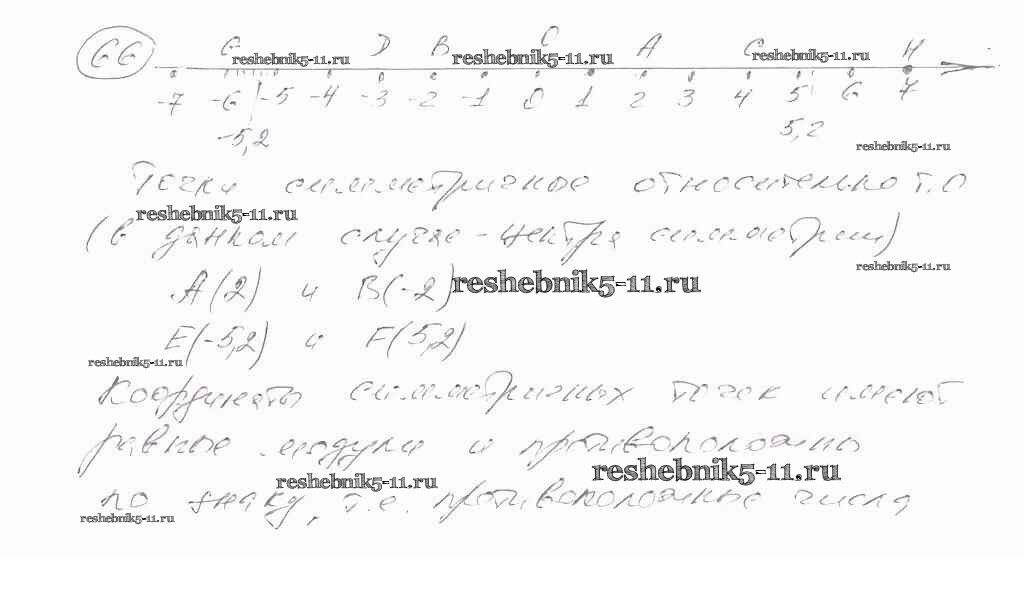 66
D B O A C H
reshebnik5-11.ru reshebnik5-11.ru reshebnik5-11.ru
-7 -6 -5 -4 -3 -2 -1 0 1 2 3 4 5 6 7
-5,2 5,2
reshebnik5-11.ru
Точки симметричные относительно т. О
reshebnik5-11.ru
(в данном случае - центра симметрии)
reshebnik5-11.ru
A(2) и B(-2) reshebnik5-11.ru
E(-5,2) и F(5,2)
reshebnik5-11.ru
Координаты симметричных точек имеют
равные модули и противоположны
reshebnik5-11.ru reshebnik5-11.ru
по знаку, т.е. противоположные числа
reshebnik5-11.ru